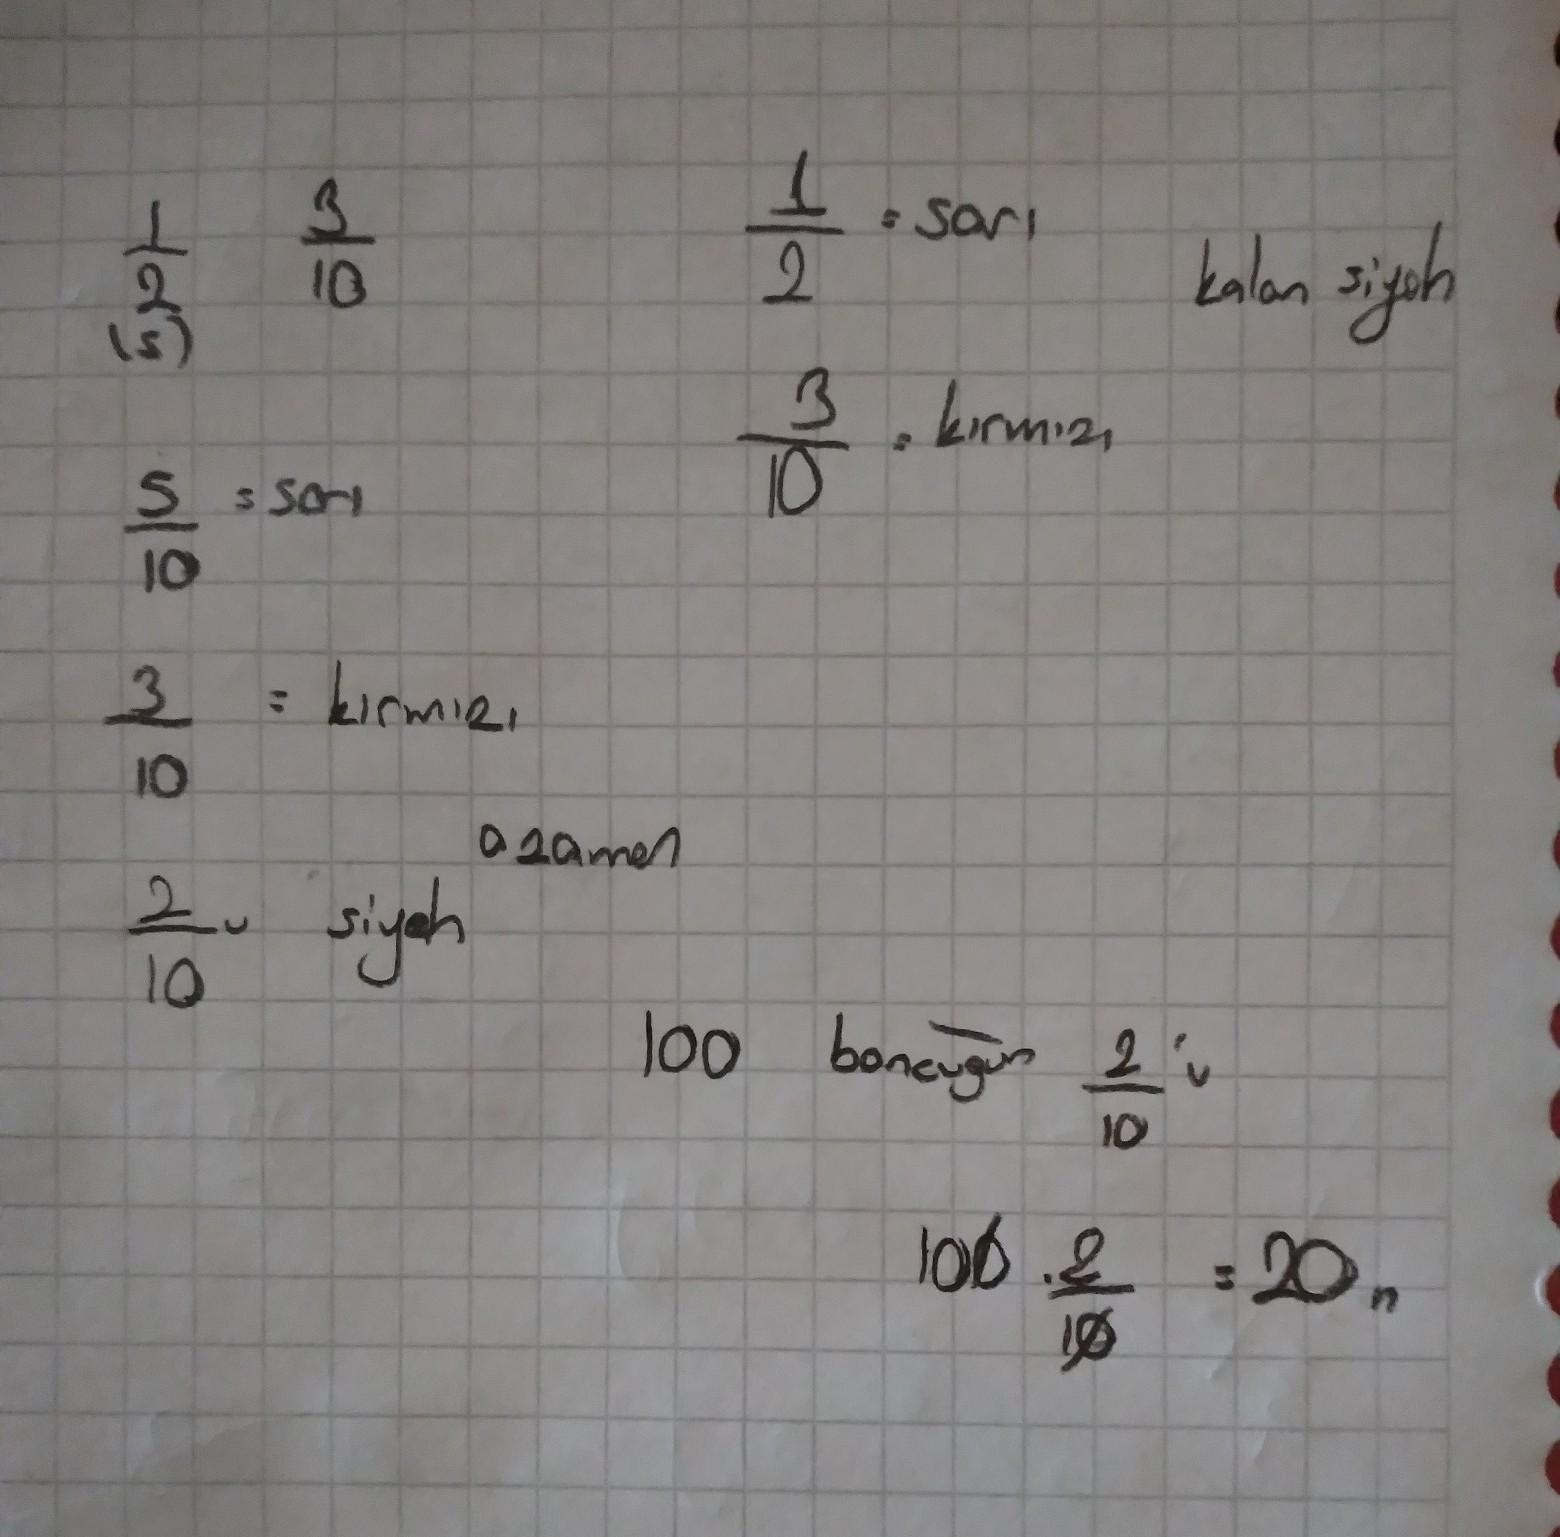 1/2 3/10
(5)
1/2 = sarı
kalan siyah
3/10 = kırmızı
5/10 = sarı
3/10 = kırmızı
2/10 u siyah
100 boncuğun 2/10 'u
100 . 2/10 = 20 //